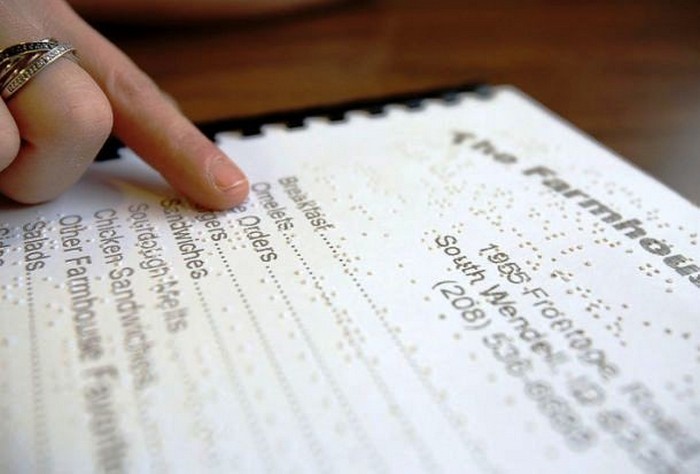 The Farmhouse
1955 Frontage Road
South Wendell, ID
(208) 536-6688
Breakfast
Omelets
Orders
Sandwiches
Sourdough Melts
Chicken Sandwiches
Other Farmhouse Favorites
Salads